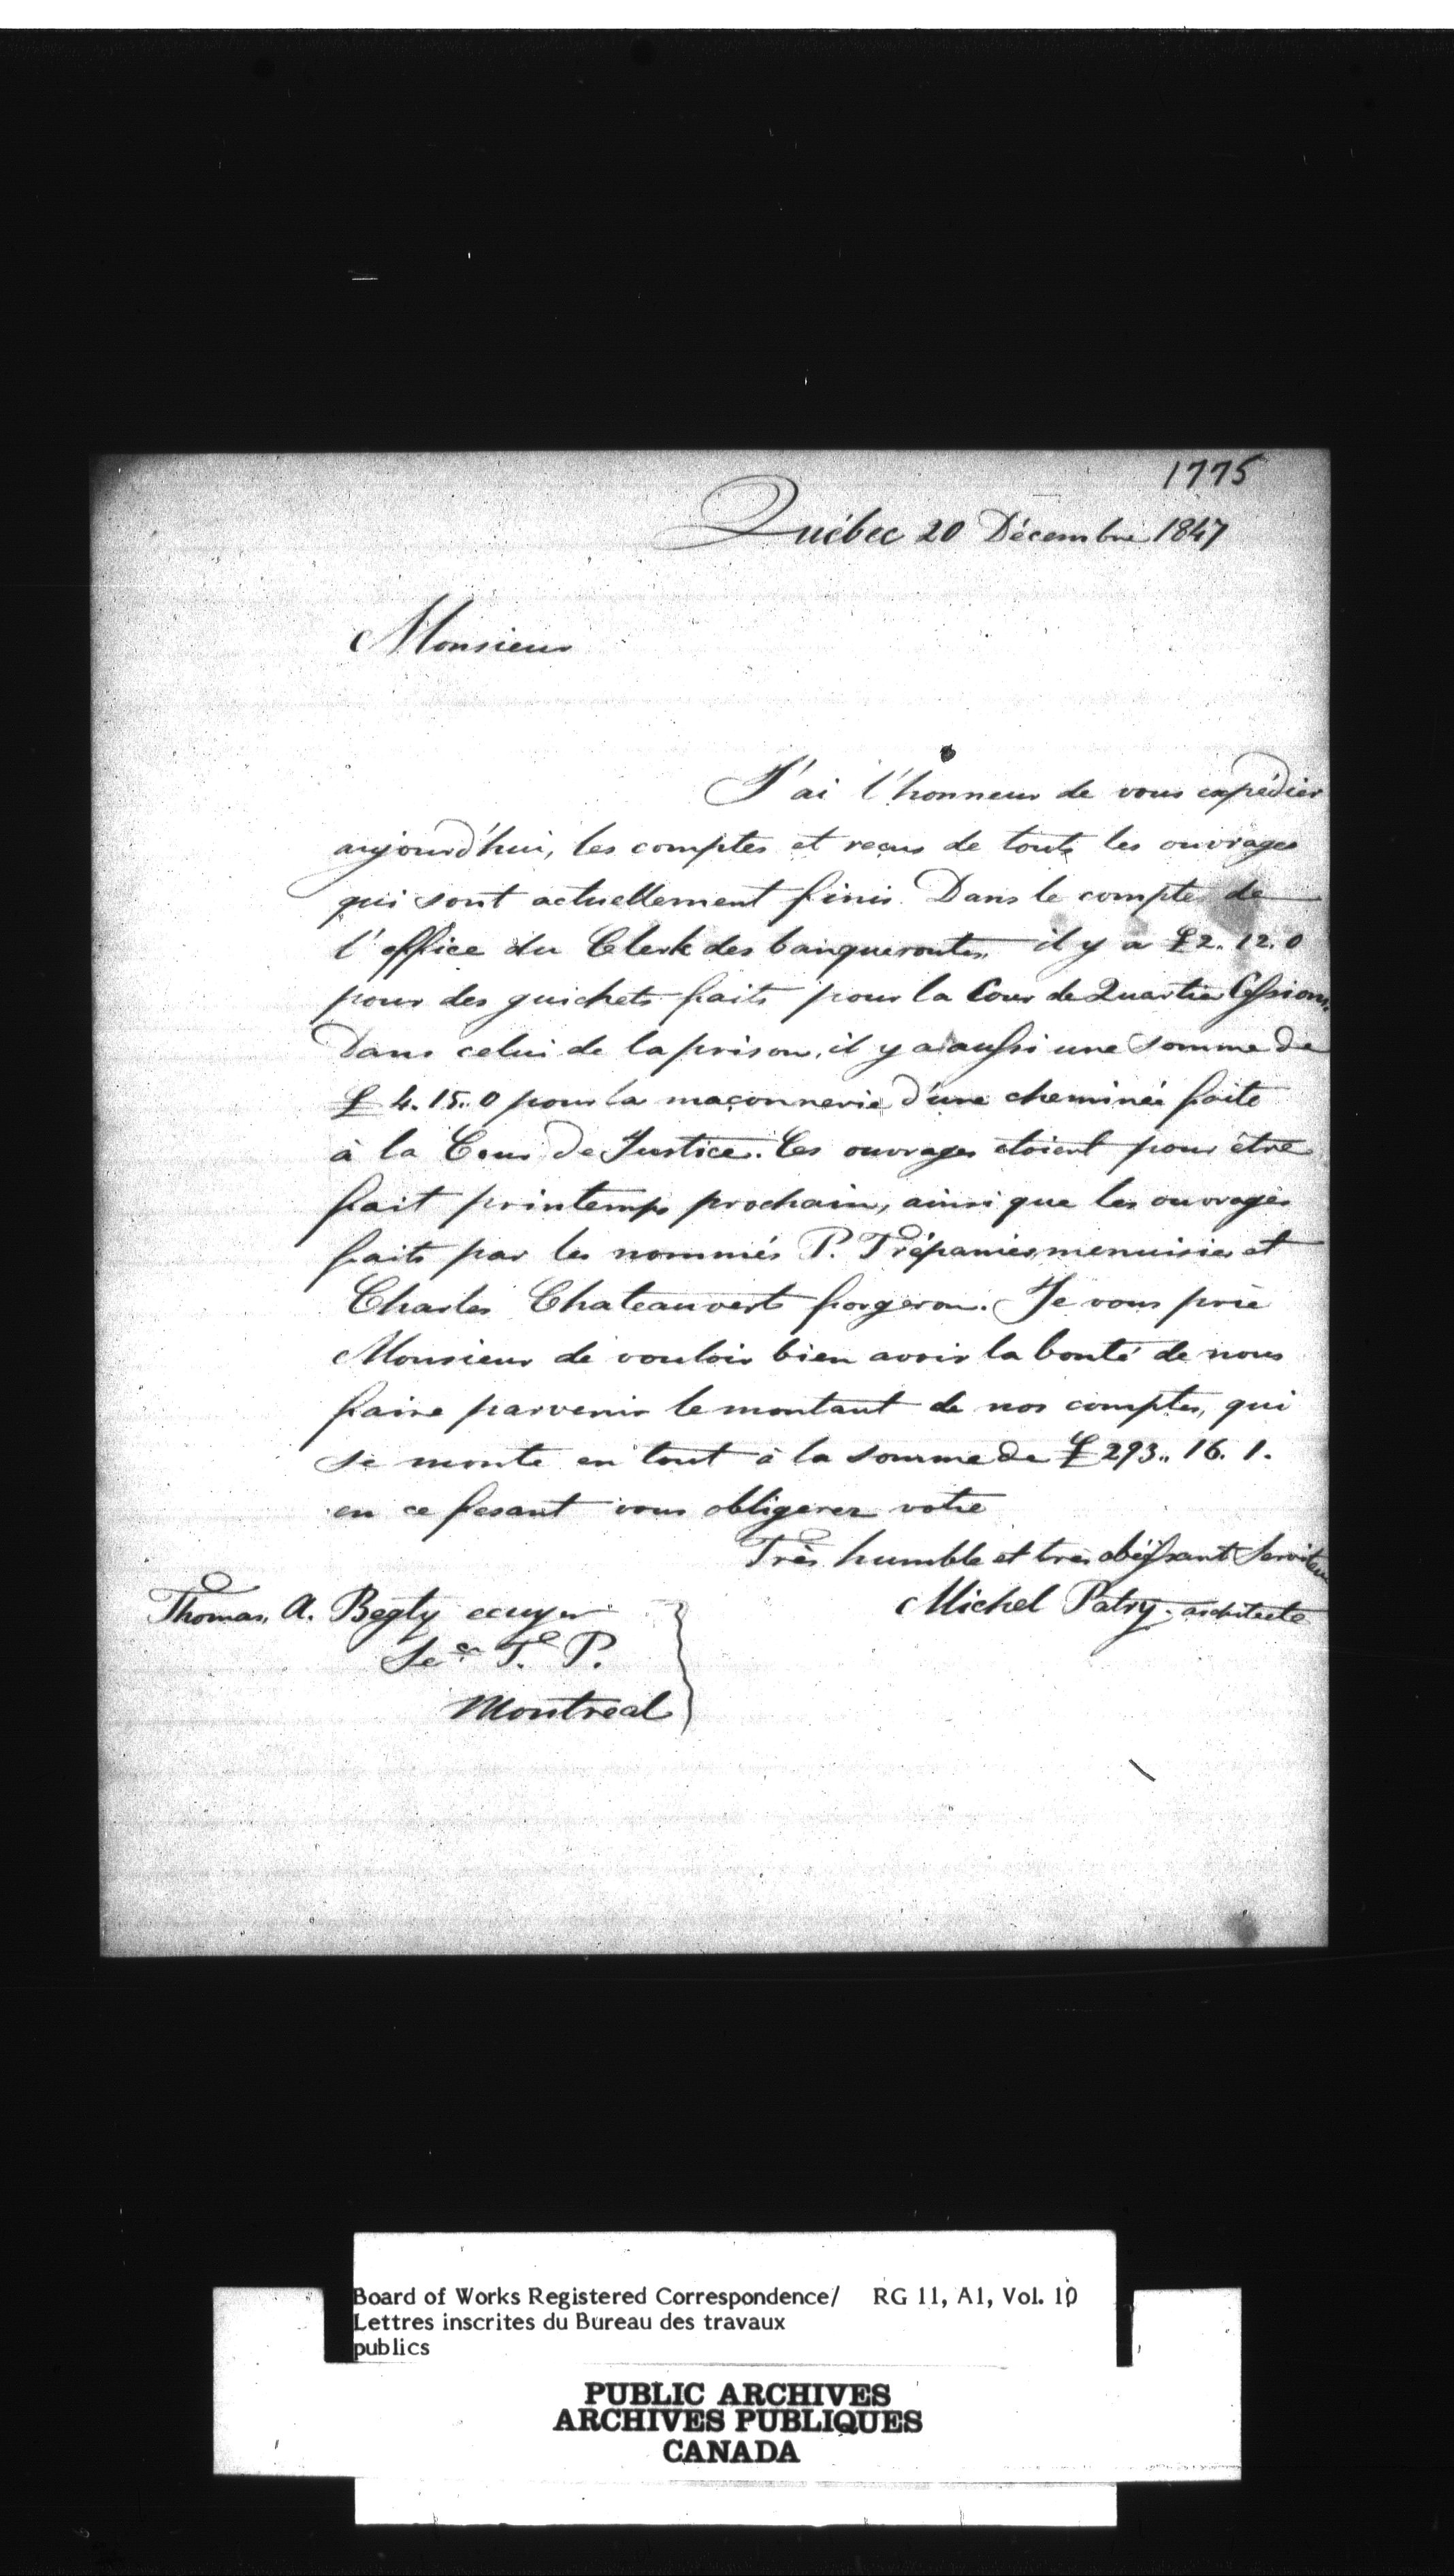 1775
Québec 20 Décembre 1847
Monsieur
J'ai l'honneur de vous expédier
aujourd'hui, les comptes et recus de touts les ouvrages
qui sont actuellement finis. Dans le compte de
l'office du Clerk des banqueroutes il y a £2.. 12. 0
pour des guichets faits pour la Cour de Quartier Cessions.
Dans celui de la prison, il y a aussi une somme de
£ 4. 15.. 0 pour la maçonnerie d'une cheminée faite
à la Cour de Justice. Ces ouvrages étoient pour être
fait printemps prochain, ainsi que les ouvrages
faits par les nommés P. Trépanier menuisier et
Charles Chateauvert forgeron. Je vous prie
Monsieur de vouloir bien avoir la bonté de nous
faire parvenir le montant de nos comptes, qui
se monte en tout à la somme de £ 293.. 16. 1.
en ce fesant vous obligerez votre
Très humble et très obéissant Serviteur
Michel Patry. architecte
Thomas. A. Begly ecuyer
Sec T. P.
Montreal
Board of Works Registered Correspondence/ RG 11, A1, Vol. 10
Lettres inscrites du Bureau des travaux
publics
PUBLIC ARCHIVES
ARCHIVES PUBLIQUES
CANADA